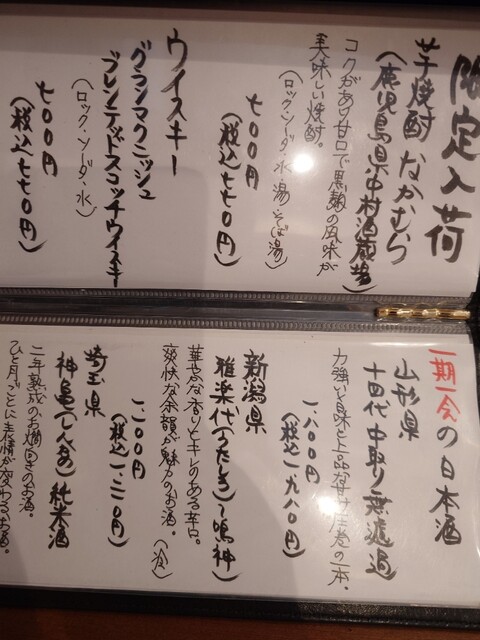 限定入荷
芋焼酎 なかむら
(鹿児島県・中村酒蔵場)
コクがあり甘口で黒麹の風味が
美味しい焼酎。
(ロック・ソーダ・水・湯・そば湯)
七〇〇円
(税込七七〇円)
ウイスキー
グランマクニッシュ
ブレンデッドスコッチウイスキー
(ロック・ソーダ・水)
七〇〇円
(税込七七〇円)
一期一会の日本酒
山形県
十四代 中取り無濾過
力強い旨味と上品な甘さ 圧巻の一本。
一、八〇〇円
(税込一、九八〇円)
新潟県
雅楽代(うたしろ)~鳴神~
華やかな香りとキレのある辛口。
爽快な余韻が魅力のお酒。 (冷)
一、二〇〇円
(税込一、三二〇円)
埼玉県
神亀(しんかめ) 純米酒
二年熟成のお燗向きのお酒。
ひと月ごとに表情が変わるお酒。